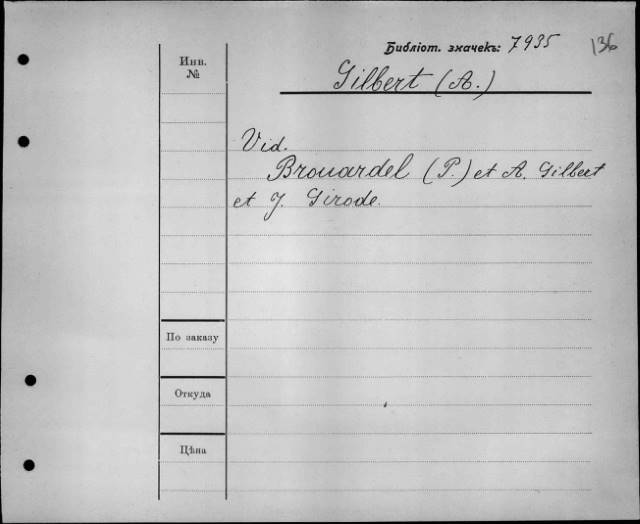 Библіот. значекъ: 7935 136
Инв.
№
Gilbert (A.)
Vid.
Brouardel (P.) et A. Gilbert
et J. Girode.
По заказу
Откуда
Цѣна